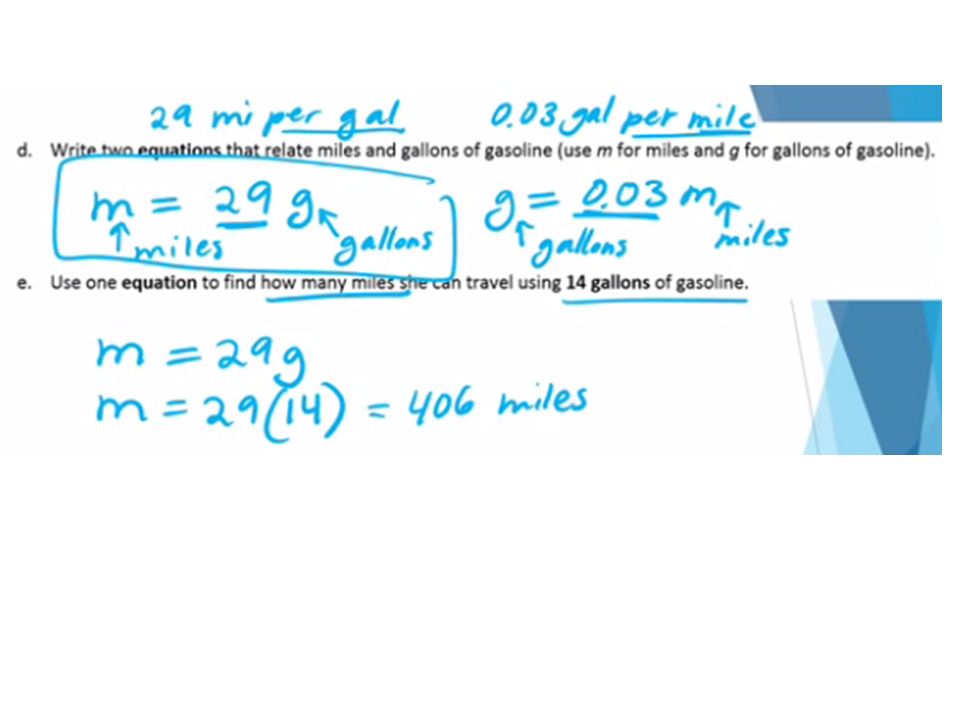 29 mi per gal 0.03 gal per mile
d. Write two equations that relate miles and gallons of gasoline (use m for miles and g for gallons of gasoline).
m = 29 g g = 0.03 m
miles gallons gallons miles
e. Use one equation to find how many miles she can travel using 14 gallons of gasoline.
m = 29g
m = 29(14) = 406 miles